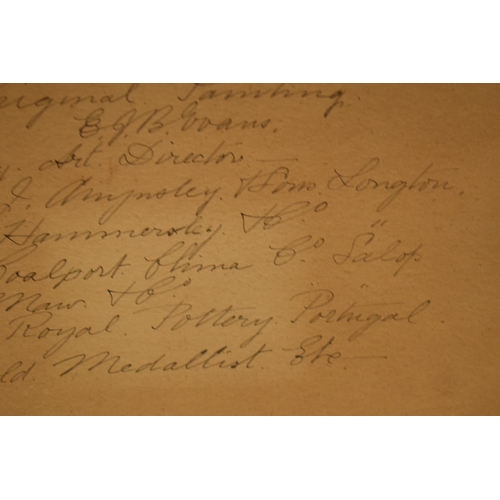 riginal Painting
E.J.B. Evans.
Art. Director
J. Aynsley. & Sons. Longton.
Hammersley. & Co "
Coalport. China Co. Salop
Maw. & Co. "
Royal. Pottery. Portugal
ld. Medallist. Etc